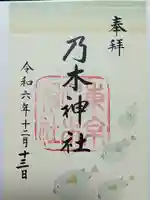 奉拝
乃木神社
令和六年十二月十三日